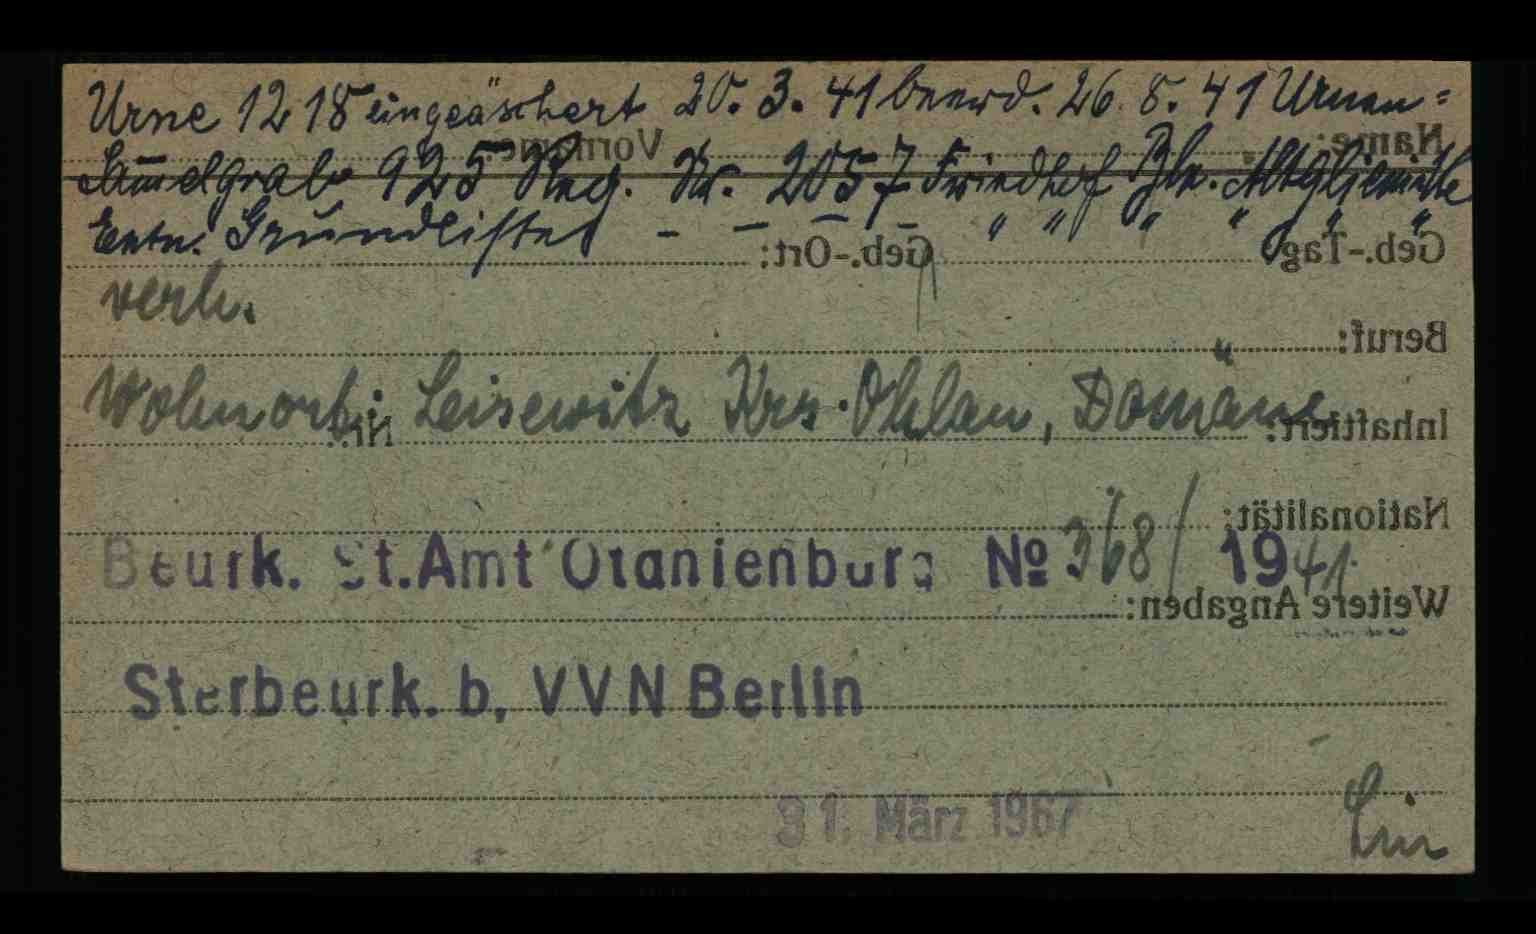 Urne 1218 eingeäschert 20. 3. 41 beerd. 26. 8. 41 Urnen=
Name: Vorname
Sam̄elgrab 925 Reg. Nr. 2057 Friedhof Bln. Altglienicke
Entn. Grundlisten - - - - " " " " " "
Geb.-Tag Geb.-Ort:
verh.
Beruf:
Wohnort: Leisewitz Krs. Ohlau, Domäne
Inhaftiert: Nr.
Nationalität:
Beurk. St.Amt Oranienburg № 368/ 1941.
Weitere Angaben:
Sterbeurk. b. VVN Berlin
31. März 1967